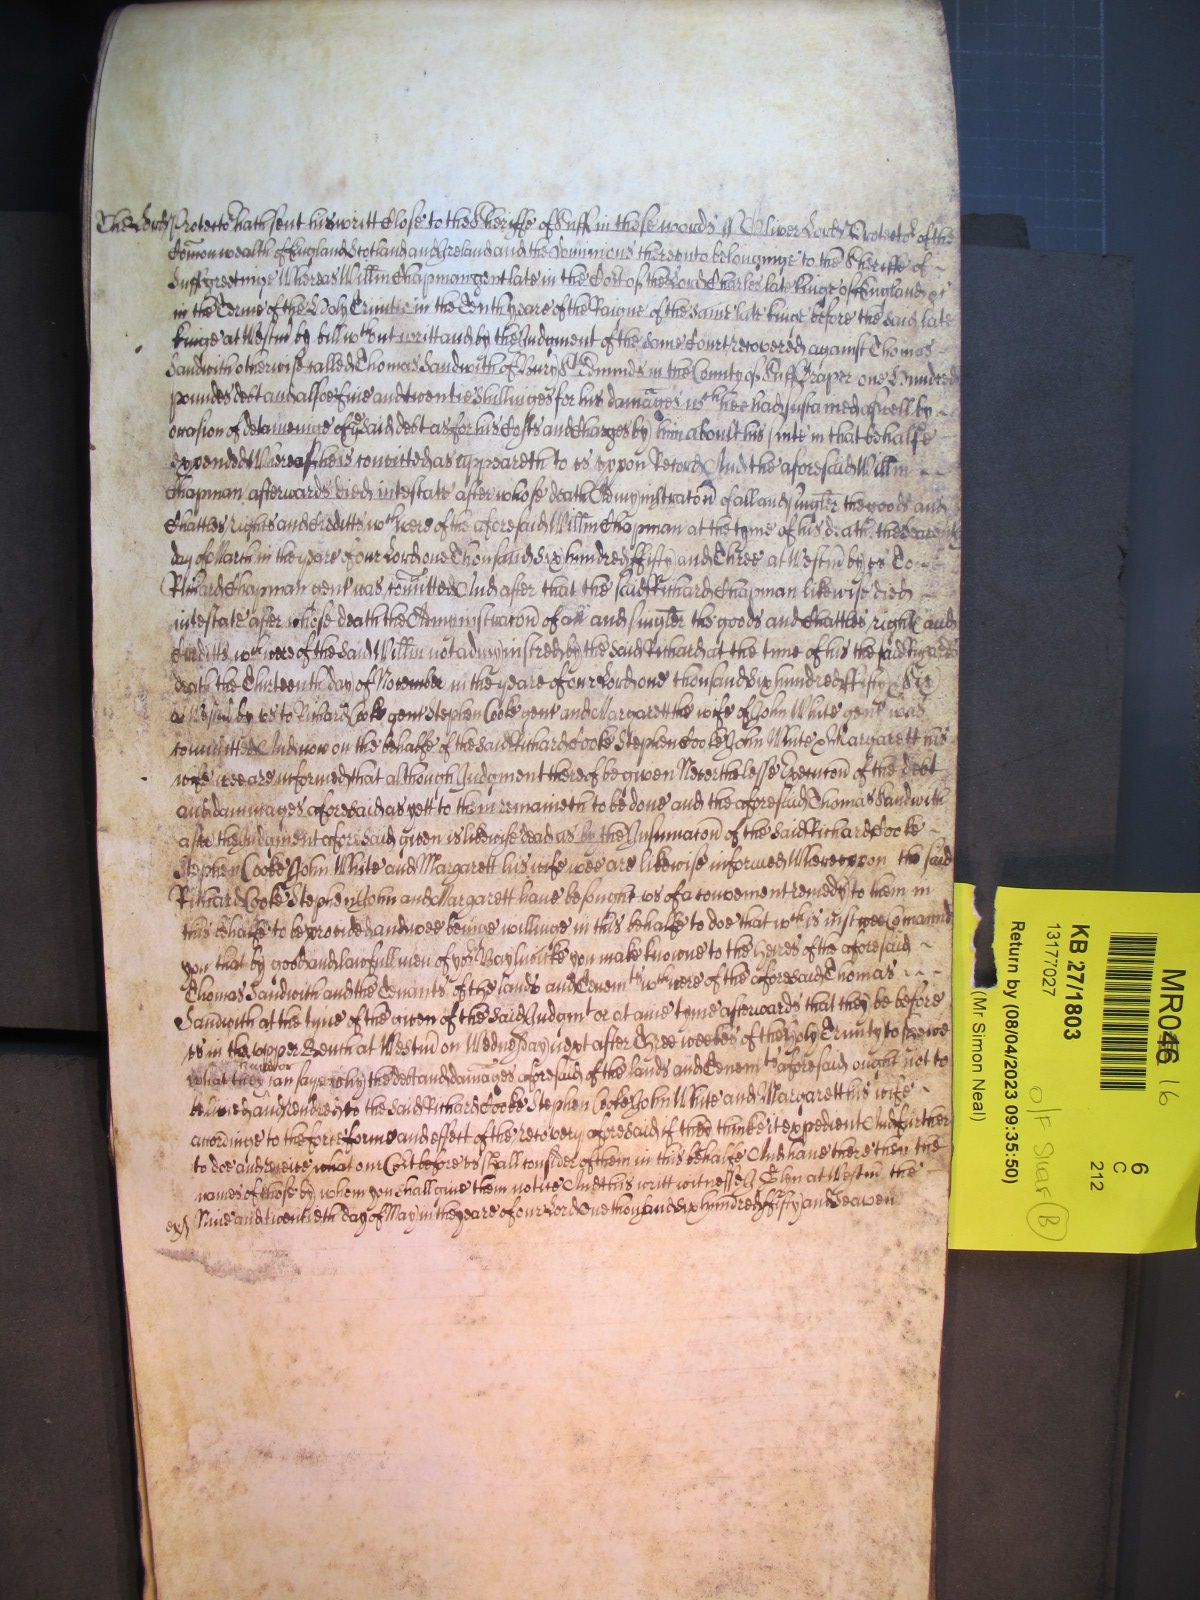 The Lord Protector hath sent his writt Close to the Sheriffe of Suff in these words ss Oliver Lord Protector of the
Comon wealth of England Scotland and Ireland and the Dominions thereunto belonginge to the Sheriffe of
Suff greetinge Whereas Willm Chapman gent late in the Cort of the Lord Charles late Kinge of England &c
in the Terme of the Holy Trinitie in the Tenth yeare of the Raigne of the same late Kinge before the said late
Kinge at Westm by bill wthout writt and by the Judgment of the same Court recovered against Thomas
Sandwith otherwise called Thomas Sandwith of Bury St Edmunds in the County of Suff Draper one hundred
poundes debt and alsoe five and twentie shillinges for his damages wch hee had sustained aswell by
occasion of detaineinge of ye said debt as for his Costs and Charges by him about his suite in that behalfe
expended Whereof he is convicted as appeareth to us uppon Record And the aforesaid Willm
Chapman afterwards died intestate after whose death Admynistracon of all and singler the goods and
Chattles rights and Creditts wch were of the aforesaid Willm Chapman at the tyme of his death the
day of March in the yeare of our Lord one Thousand Six hundred ffifty and Three at Westm by us To
Richard Chapman gent was comitted And after that the said Richard Chapman likewise died
intestate after whose death the Admynistracon of all and singler the goods and Chattles rights and
Creditts wch were of the said Willm not admynistred by the said Richard at the tyme of his the said Richards
death the Thirteenth day of November in the yeare of our Lord one thousand six hundred ffifty Six
at Westm by us to Richard Cooke gent Stephen Cooke gent and Margarett the wife of John White gent was
comitted And now on the behalfe of the said Richard Cooke Stephen Cooke John White & Margarett his
wife wee are informed that although Judgment thereof be given Neverthelesse Execucon of the debt
and dammages aforesaid as yett to them remaineth to be done and the aforesaid Thomas Sandwith
after the Judgment aforesaid given is likewise dead as by the Informacon of the said Richard Cooke
Stephen Cooke John White and Margarett his wife wee are likewise informed Whereuppon the said
Richard Cooke Stephen John and Margarett have besought us of a convenient remedy to them in
this behalfe to be provided and wee beinge willinge in this behalfe to doe that wch is just wee Comannd
you that by good and lawfull men of yor Bayliwicke you make knowne to the heires of the aforesaid
Thomas Sandwith and the Tenants of the lands and Tenemts wch were of the aforesaid Thomas
Sandwith at the tyme of the given of the said Judgmt or at anie tyme afterwards that they be before
us in the upper Bench at Westm on Wednesday next after Three weekes of the Holy Trinity to shewe
what they can say why the debt and damages aforesaid of the lands and Tenemts aforesaid ought not to
be levied and rendred to the said Richard Cooke Stephen Cooke John White and Margarett his wife
accordinge to the force forme and effect of the recovery aforesaid if they thinke it expedient And further
to doe and receive what our Cort before us shall consider of them in this behalfe And have there then the
names of those by whom you shall give them notice And this writt witnesse at Westm the
Nine and twentieth day of May in the yeare of our Lord One thousand six hundred fifty and Seaven
exd
MR046
16
6
C
212
KB 27/1803
13177027
Return by (08/04/2023 09:35:50)
(Mr Simon Neal)
O/F Shar B